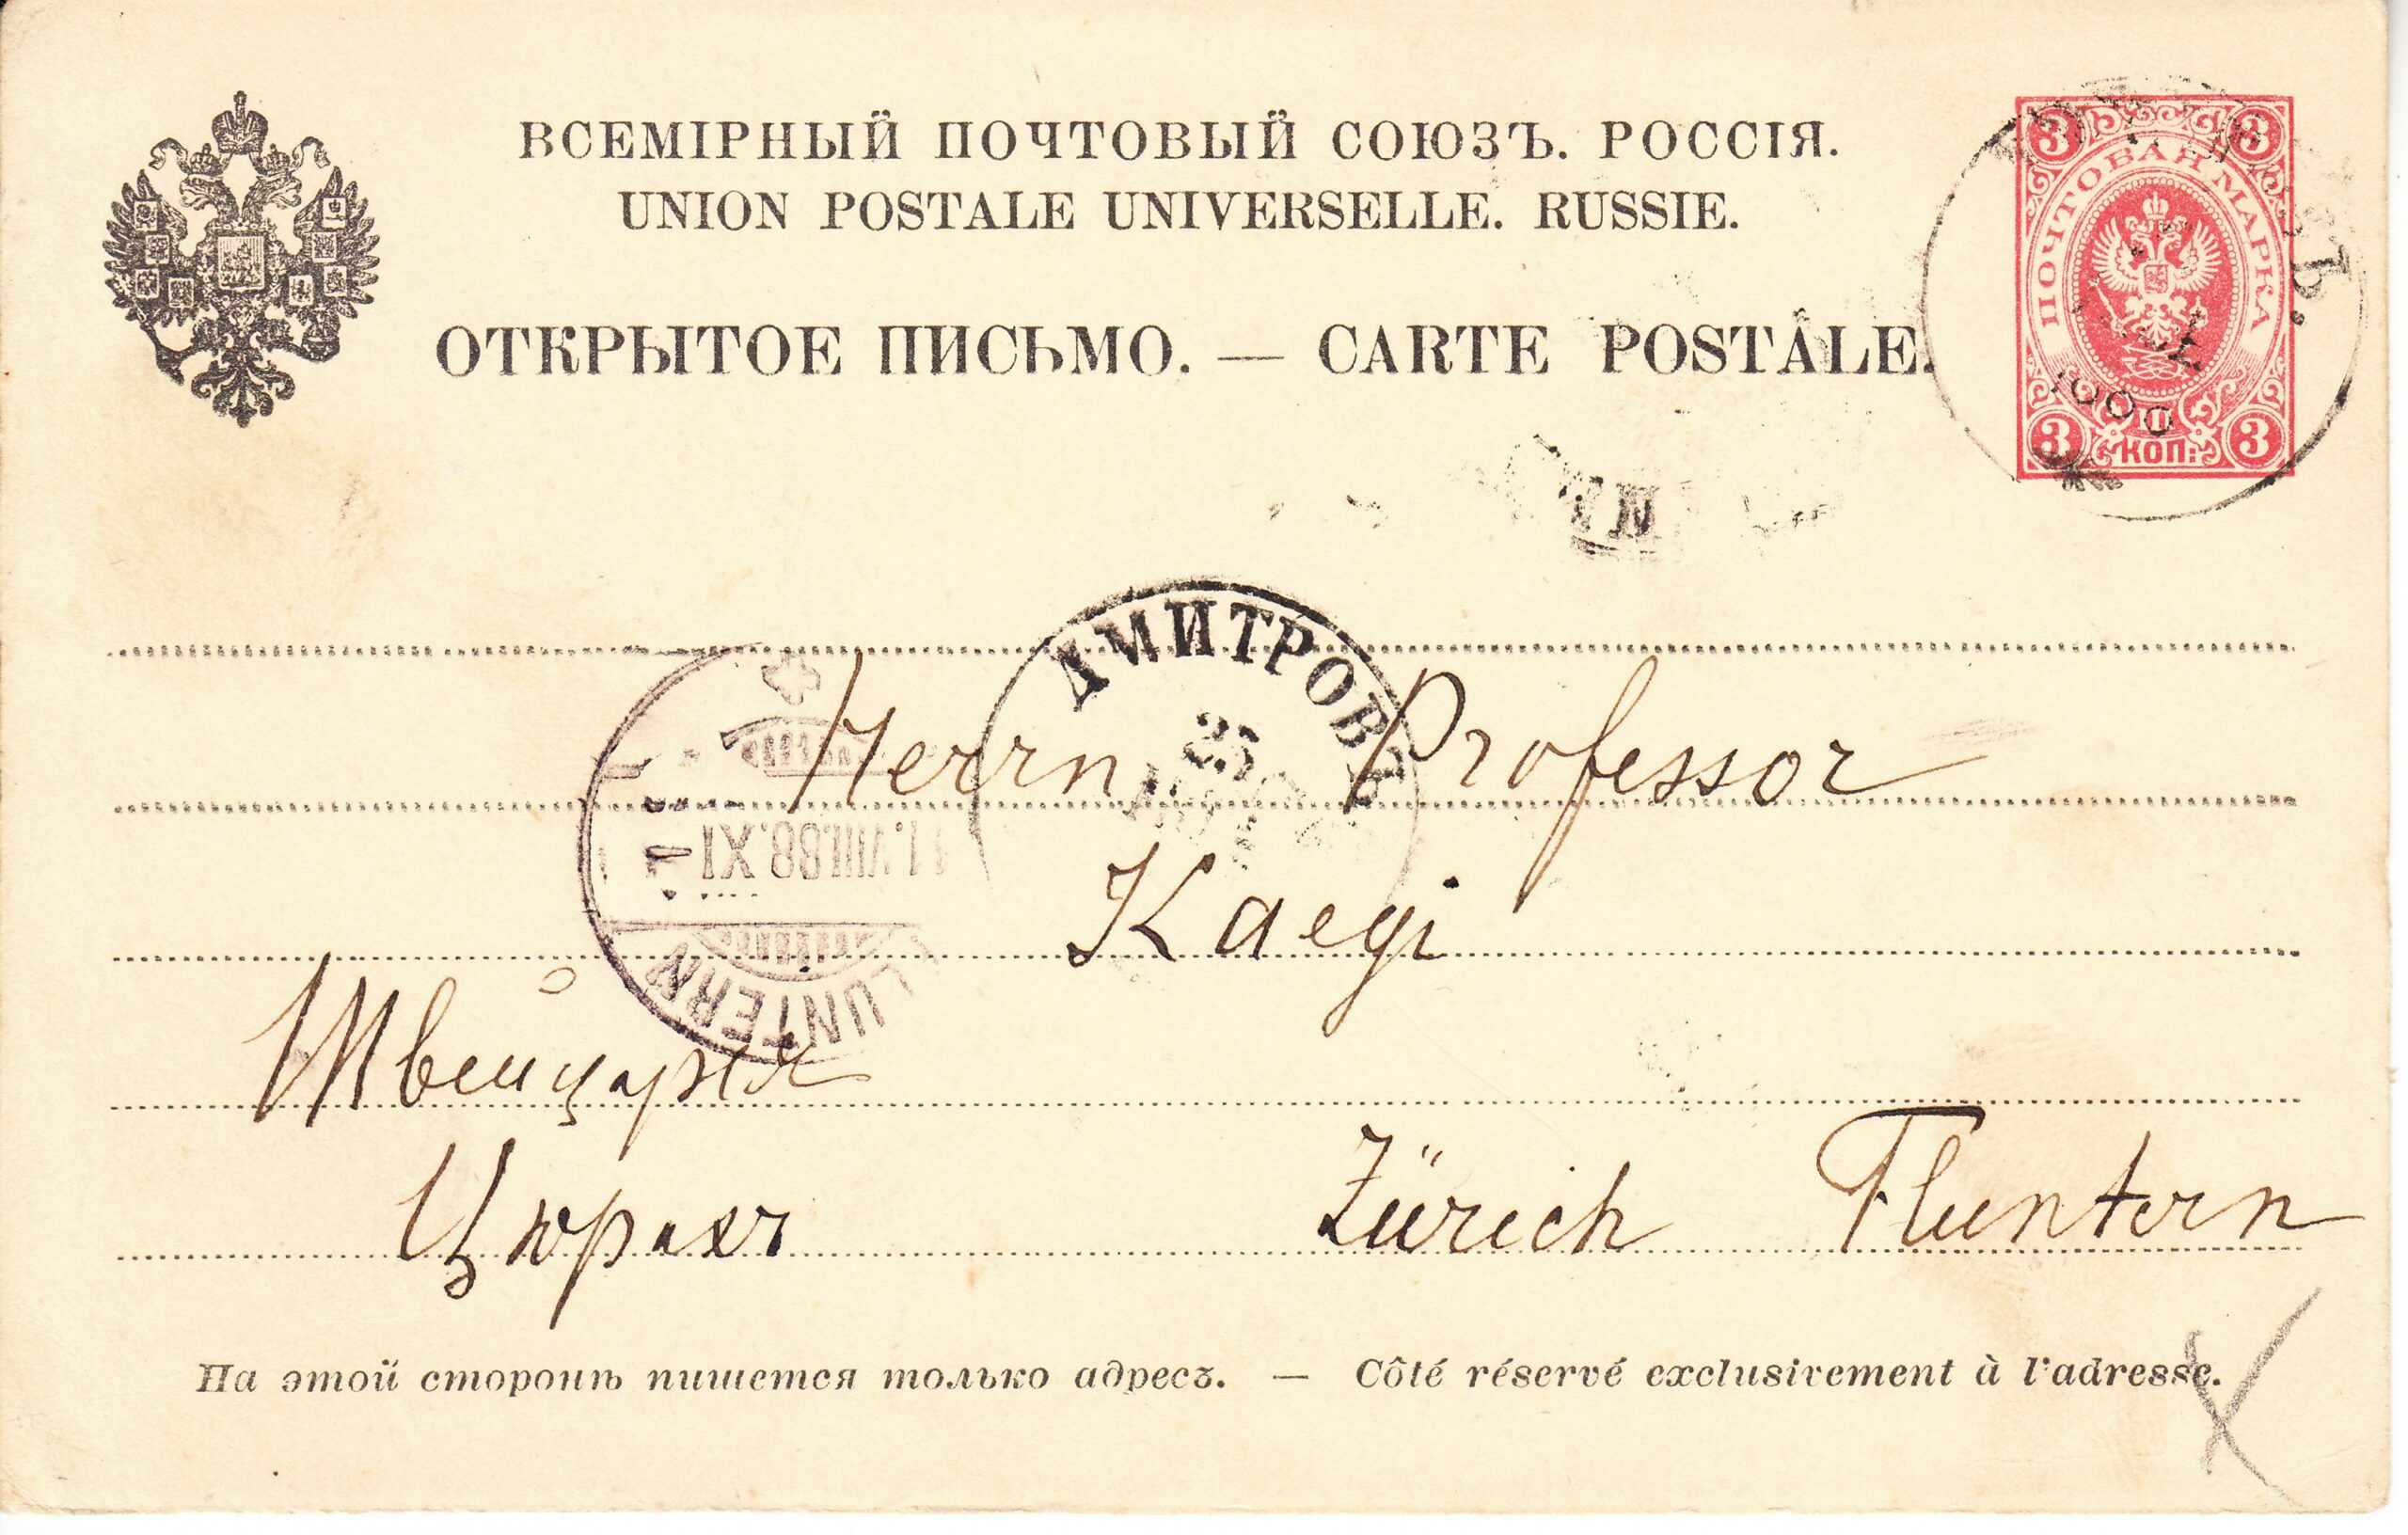 ВСЕМІРНЫЙ ПОЧТОВЫЙ СОЮЗЪ. РОССІЯ.
UNION POSTALE UNIVERSELLE. RUSSIE.
ОТКРЫТОЕ ПИСЬМО. — CARTE POSTALE.
3 3
ПОЧТОВАЯ МАРКА
3 КОП: 3
ДМИТРОВЪ
25
Herrn Professor
11.VIII.88.XI
Kaegi
LUNTERN
Швейцарія
Цюрихъ Zürich Fluntern
На этой сторонѣ пишется только адресъ. — Côté réservé exclusivement à l'adresse.